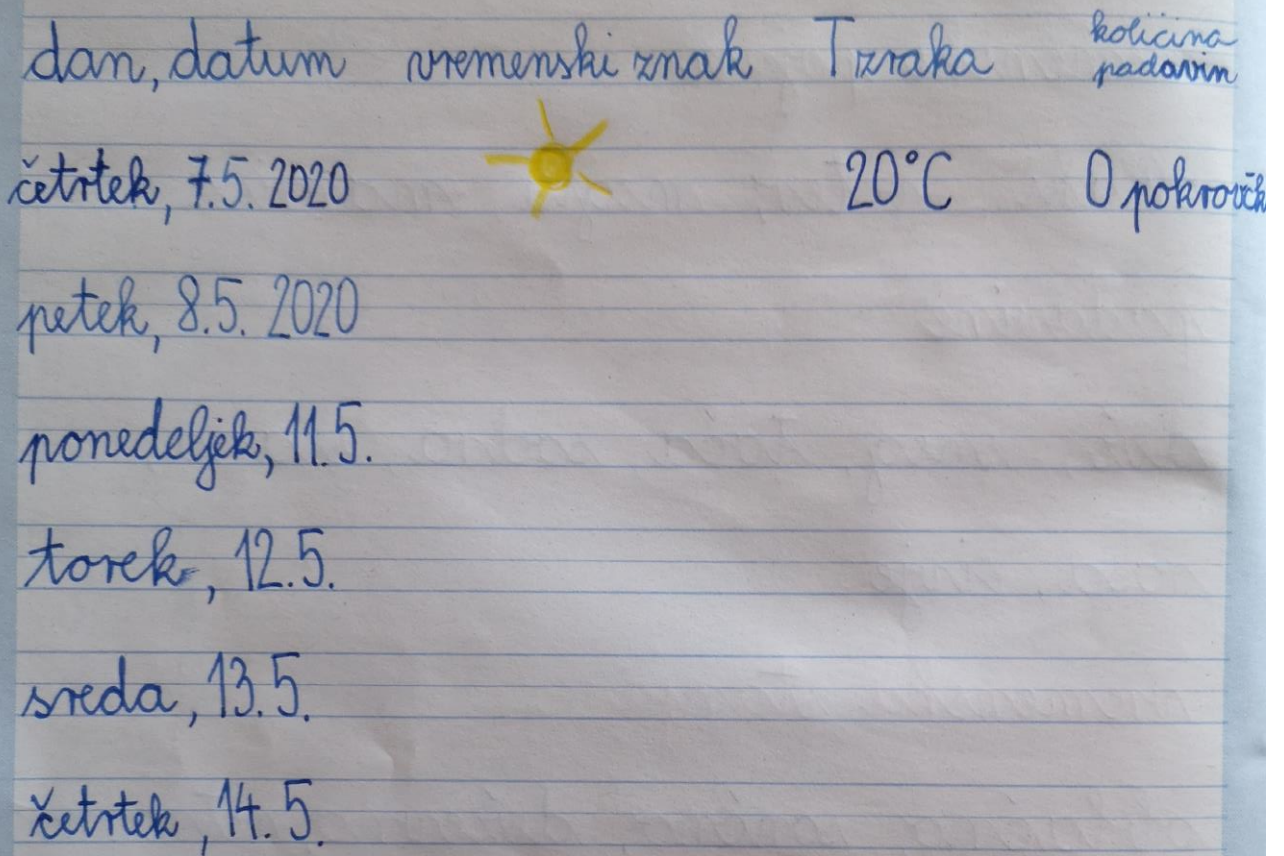 dan, datum vremenski znak T zraka količina padavin
četrtek, 7.5. 2020 20°C 0 pokrovčk
petek, 8.5. 2020
ponedeljek, 11.5.
torek, 12.5.
sreda, 13.5.
četrtek, 14.5.